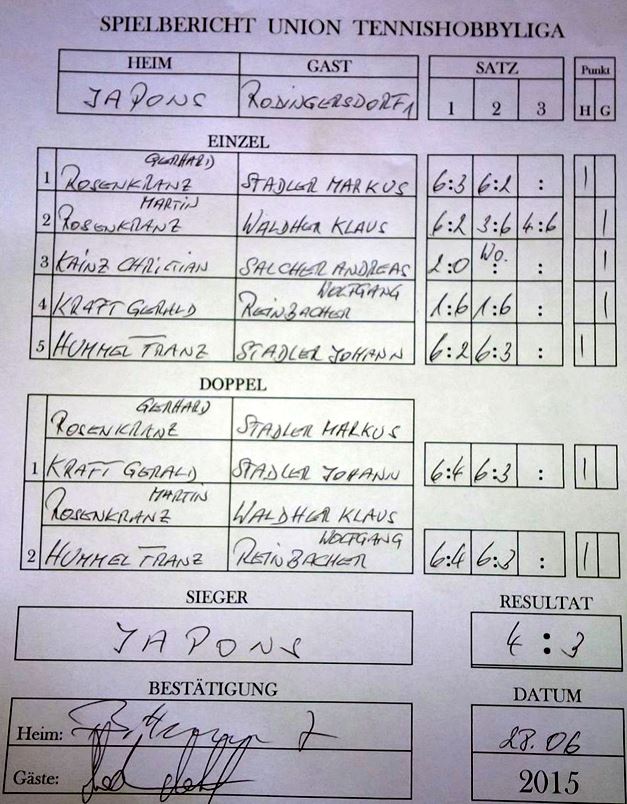 SPIELBERICHT UNION TENNISHOBBYLIGA
HEIM GAST SATZ Punkt
JAPONS RODINGERSDORF 1 1 2 3 H G
EINZEL
GERHARD
1 ROSENKRANZ STADLER MARKUS 6:3 6:2 : |
MARTIN
2 ROSENKRANZ WALDHER KLAUS 6:2 3:6 4:6 |
3 KAINZ CHRISTIAN SALCHER ANDREAS 2:0 W.O. : : |
WOLFGANG
4 KRAFT GERALD REINBACHER 1:6 1:6 : |
5 HUMMEL FRANZ STADLER JOHANN 6:2 6:3 : |
DOPPEL
GERHARD
ROSENKRANZ STADLER MARKUS
1 KRAFT GERALD STADLER JOHANN 6:4 6:3 : |
MARTIN
ROSENKRANZ WALDHER KLAUS
WOLFGANG
2 HUMMEL FRANZ REINBACHER 6:4 6:3 : |
SIEGER RESULTAT
JAPONS 4:3
BESTÄTIGUNG DATUM
Heim: 28.06
Gäste: 2015